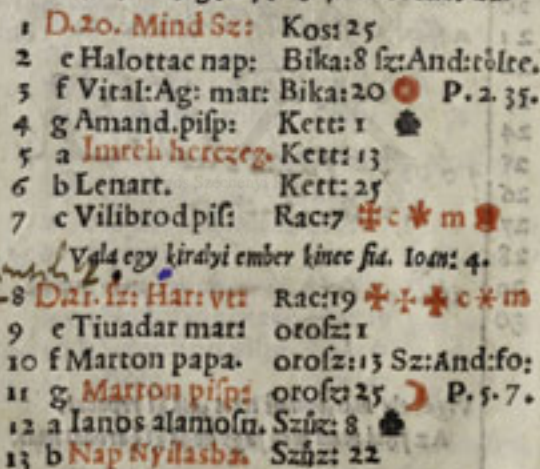 1 D.20. Mind Sz: Kos: 25
2 e Halottac nap: Bika: 8 ſz: And: tôlte.
3 f Vital: Ag: mar: Bika: 20 P. 2. 35.
4 g Amand. piſp: Kett: 1
5 a Imreh herczeg. Kett: 13
6 b Lenart. Kett: 25
7 c Vilibrod piſ: Rac: 7 c m
Vala egy kiralyi ember kinec fia. Ioan: 4.
8 D.21. ſz: Har: vt: Rac: 19 c m
9 e Tiuadar mar: oroſz: 1
10 f Marton papa. oroſz: 13 Sz: And: fo:
11 g Marton piſp: oroſz: 25 P. 5. 7.
12 a Ianos alamoſn. Szûz: 8
13 b Nap Nyilasba. Szûz: 22